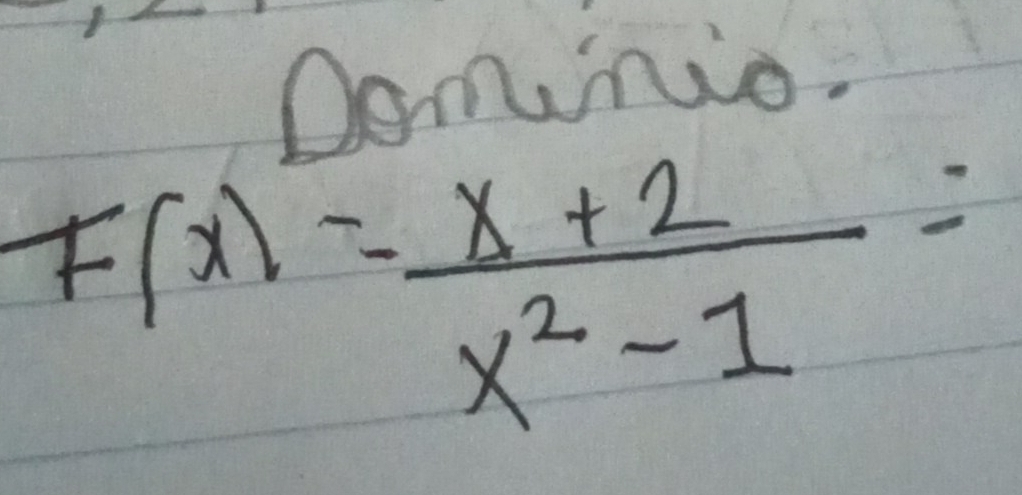 Dominio.
F(x) = x + 2 / x² - 1 =